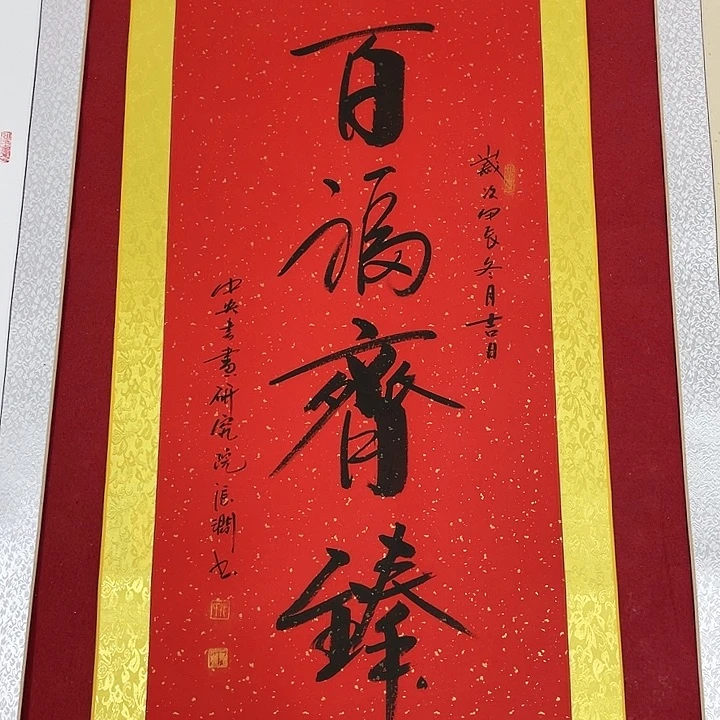 歲次甲辰冬月吉日
百福齊臻
中央書畫研究院張書